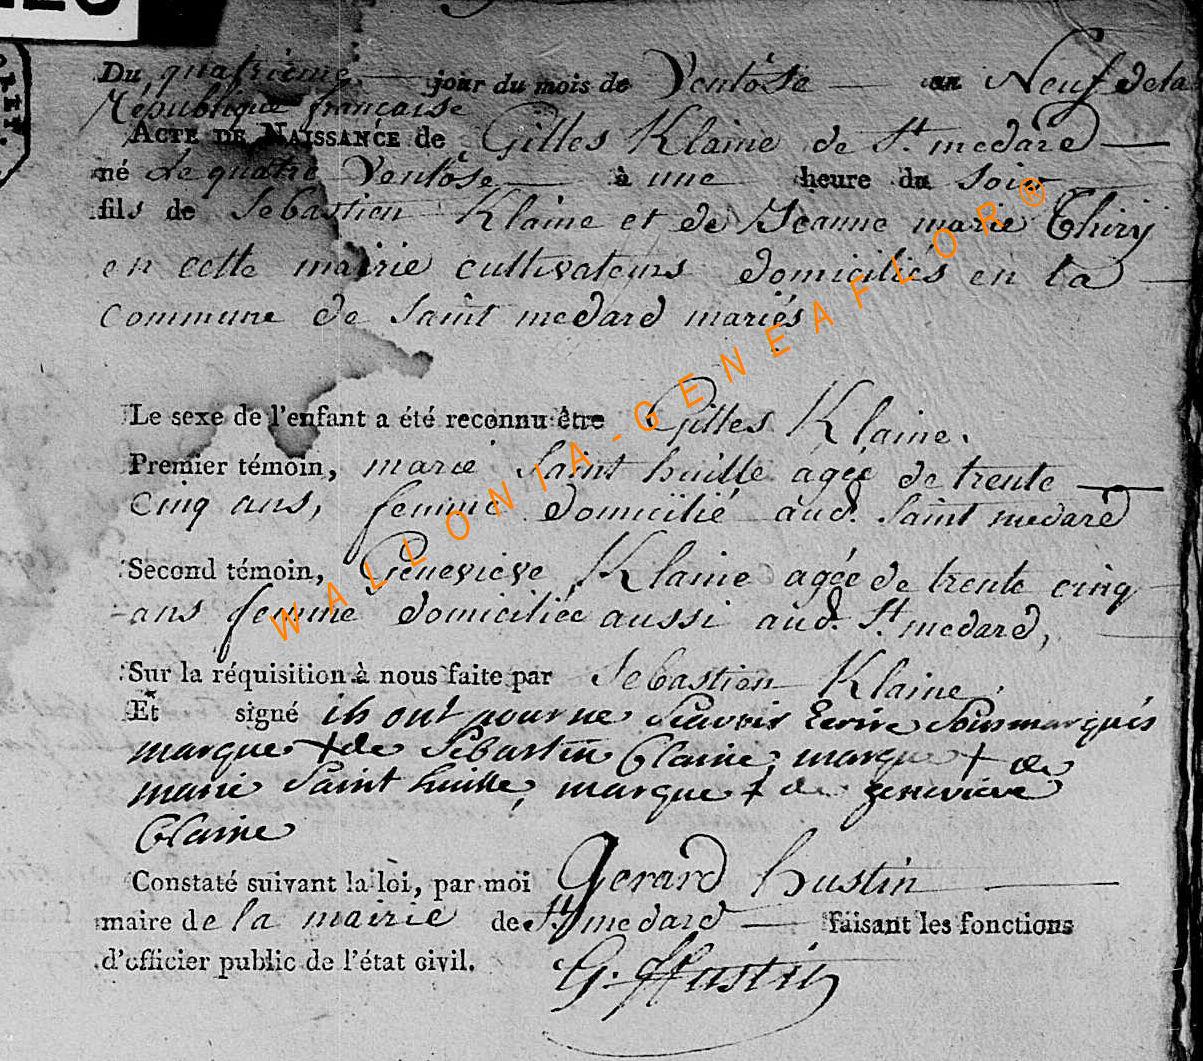 Du quatrième jour du mois de Ventôse an Neuf de la
République française
ACTE DE NAISSANCE de Gilles Klaine de St. medard
né le quatre Ventôse à une heure du soir
fils de Sebastien Klaine et de Jeanne marie Thiry
en cette mairie cultivateurs domiciliés en la
Commune de Saint medard mariés
Le sexe de l'enfant a été reconnu être Gilles Klaine.
Premier témoin, marie Saint huille agée de trente
Cinq ans, femme domicilié aud. Saint medard
Second témoin, Genevieve Klaine agée de trente cinq
ans femme domiciliée aussi aud. St. medard,
Sur la réquisition à nous faite par Sebastien Klaine,
Et signé ils ont pour ne Scavoir Ecrire Sousmarqués
marque + de Sébastin Claine, marque + de
marie Saint huille, marque + de genevieve
Claine
Constaté suivant la loi, par moi Gerard hustin
maire de la mairie de St medard faisant les fonctions
d'officier public de l'état civil. G. Hustin
WALLONIA-GENEAFLOR®